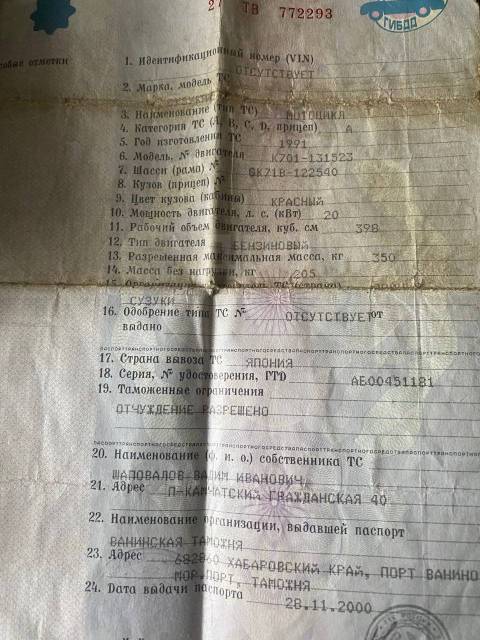 ТВ 772293
ГИБДД
особые отметки
1. Идентификационный номер (VIN)
ОТСУТСТВУЕТ
2. Марка, модель ТС
3. Наименование (тип ТС) МОТОЦИКЛ
4. Категория ТС (А, В, С, D, прицеп) А
5. Год изготовления ТС 1991
6. Модель, № двигателя К701-131523
7. Шасси (рама) № GK71B-122540
8. Кузов (прицеп) №
9. Цвет кузова (кабины) КРАСНЫЙ
10. Мощность двигателя, л. с. (кВт) 20
11. Рабочий объем двигателя, куб. см 398
12. Тип двигателя БЕНЗИНОВЫЙ
13. Разрешенная максимальная масса, кг 350
14. Масса без нагрузки, кг 205
15. 
СУЗУКИ
16. Одобрение типа ТС № ОТСУТСТВУЕТ от
выдано
17. Страна вывоза ТС ЯПОНИЯ
18. Серия, № удостоверения, ГТД АБ00451181
19. Таможенные ограничения
ОТЧУЖДЕНИЕ РАЗРЕШЕНО
20. Наименование (ф. и. о.) собственника ТС
ШАПОВАЛОВ ВАДИМ ИВАНОВИЧ
21. Адрес П-КАМЧАТСКИЙ ГРАЖДАНСКАЯ 40
22. Наименование организации, выдавшей паспорт
ВАНИНСКАЯ ТАМОЖНЯ
23. Адрес 682860 ХАБАРОВСКИЙ КРАЙ, ПОРТ ВАНИНО
МОР.ПОРТ, ТАМОЖНЯ
24. Дата выдачи паспорта
28.11.2000